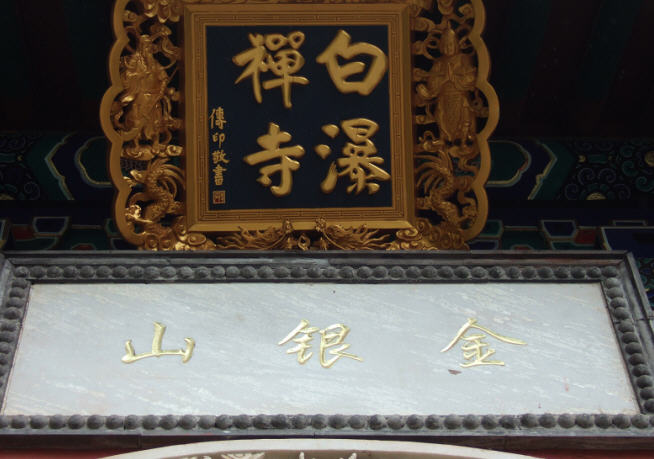 白瀑
禪寺
傳印敬書
金银山